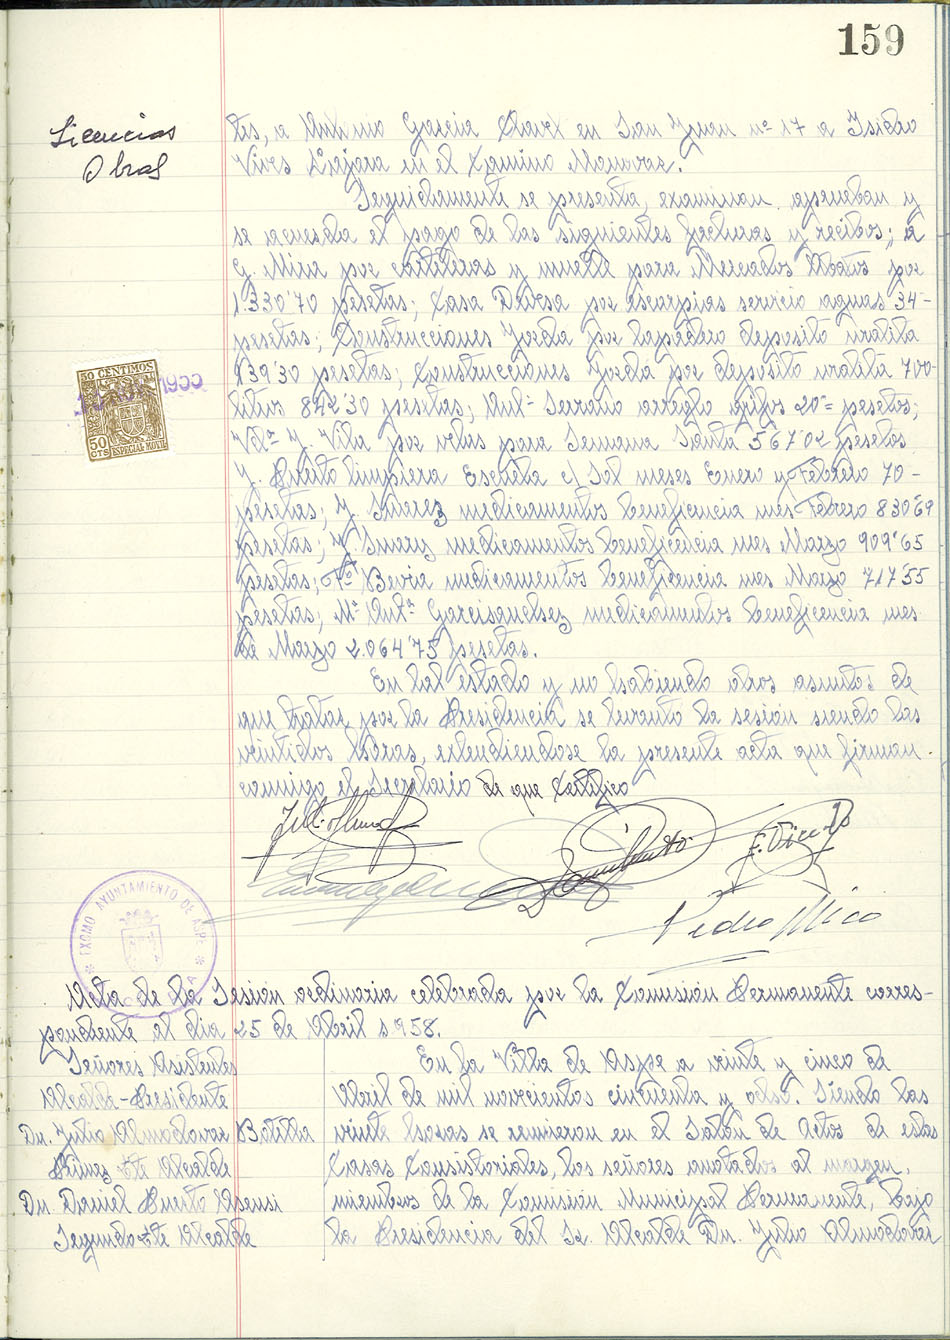 159
Licencias
Obras
tes, a Antonio Garcia Chavez en San Juan nº 17 a Isidro
Vives en el Camino Monovar.
Seguidamente se presenta, examinan, aprueban y
se acuerda el pago de las siguientes facturas y recibos; a
G. Mira por carteleras y muelle para Mercados Abastos por
1.330'70 pesetas; Casa Devesa por escarpias servicio aguas 34-
pesetas; Construcciones Jorda por tapadera deposito uralita
139'30 pesetas; Construcciones Jorda por deposito uralita 700-
litros 842'30 pesetas; Antº Serrano arreglo grifos 20'= pesetas;
Vdª J. Vila por velas para Semana Santa 567'02 pesetas
J. Puerto limpiera Escuela el Sol meses Enero y Febrero 70-
pesetas; J. Suarez medicamentos beneficencia mes Febrero 830'69
pesetas; J. Suarez medicamentos beneficencia mes Marzo 909'65
pesetas; Fº Bevia medicamentos beneficencia mes Marzo 717'55
pesetas, Mª Antª Garcisanchez medicamentos beneficencia mes
de Marzo 2.064'75 pesetas.
En tal estado y no habiendo otros asuntos de
que tratar por la Presidencia se levanto la sesión siendo las
veintidos horas, extendiendose la presente acta que firman
conmigo el Secretario de que Certifico
50 CENTIMOS
50
CTS ESPECIAL MOVIL
Pedro Mico
EXCMO AYUNTAMIENTO DE ASPE
Acta de la Sesión ordinaria celebrada por la Comisión Permanente corres-
pondiente al dia 25 de Abril 1958.
Señores Asistentes
Alcalde-Presidente
Dn. Julio Almodovar Botella
Primer Tte Alcalde
Dn. Daniel Puerto Asensi
Segundo Tte Alcalde
En la Villa de Aspe a veinte y cinco de
Abril de mil novecientos cincuenta y ocho. Siendo las
veinte horas se reunieron en el Salón de Actos de estas
Casas Consistoriales, los señores anotados al margen,
miembros de la Comisión Municipal Permanente, bajo
la Presidencia del Sr. Alcalde Dn. Julio Almodovar